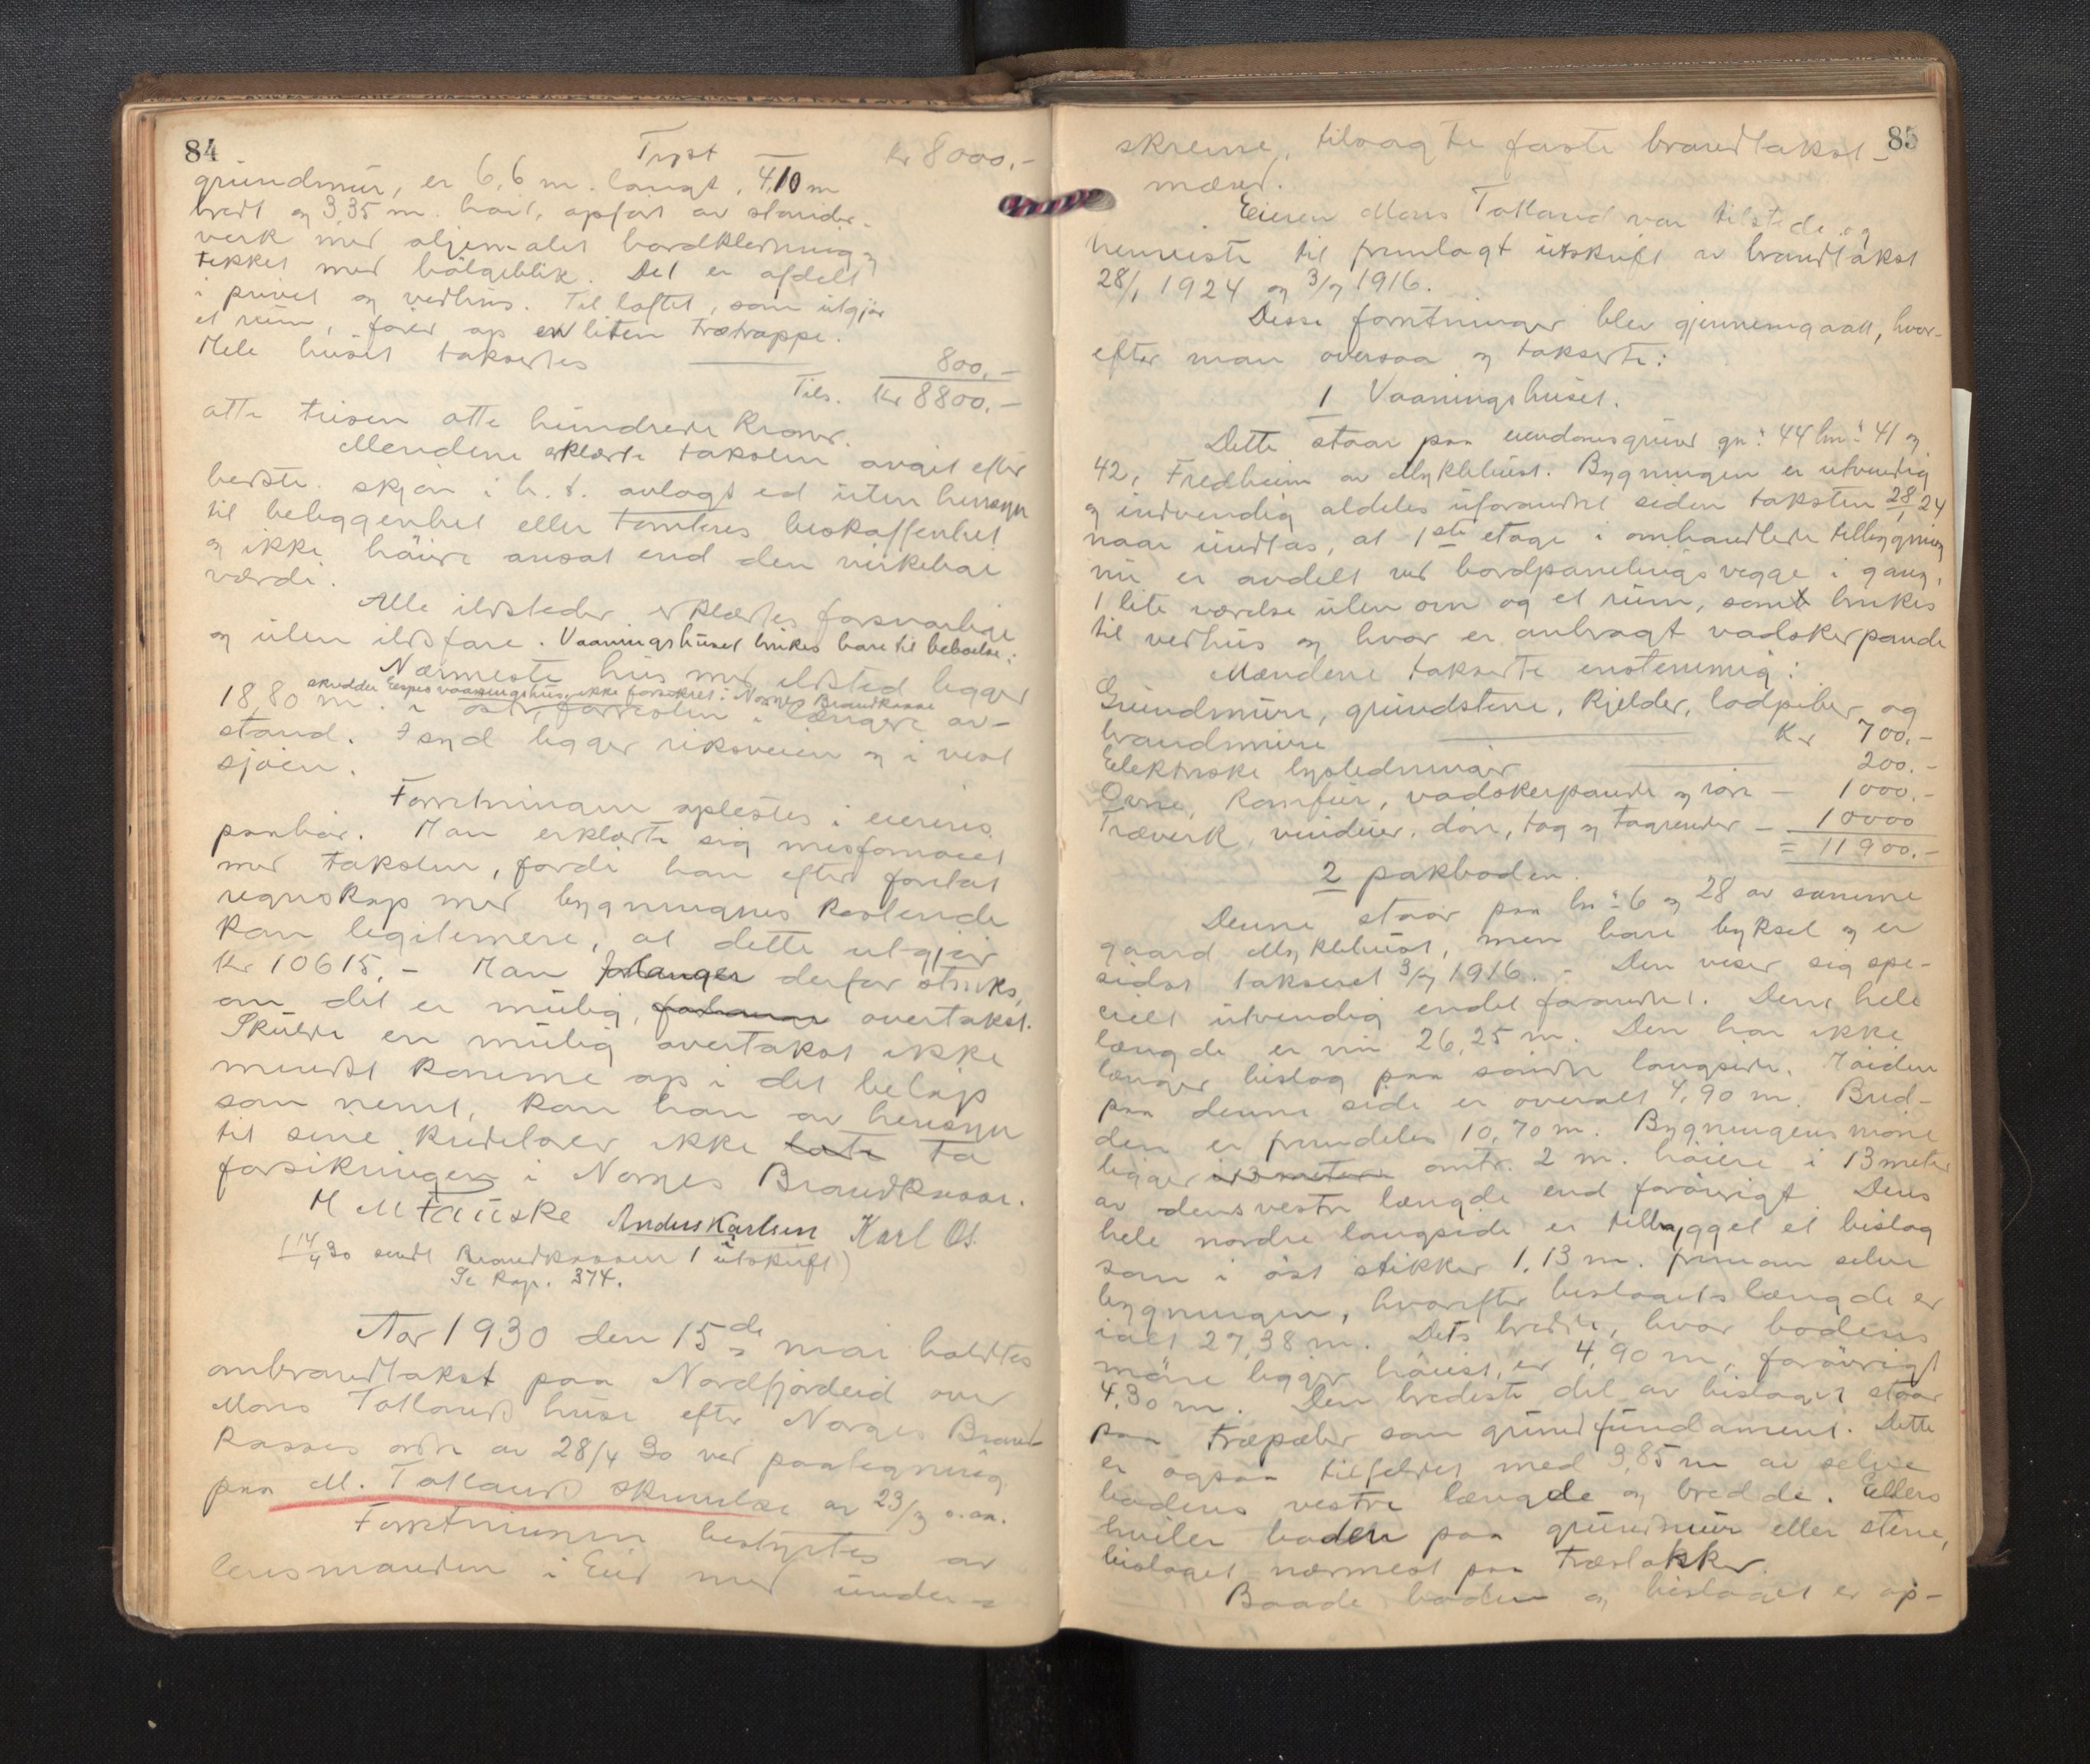 84
Trpst kr 8000,-
grundmur, er 6,6 m. langt, 4,10 m
bredt og 3,35 m. høit, opført av stender-
verk med oljemalet bordklædning og
tekket med bølgeblik. Det er afdelt
i privet og vedhus. Til loftet, som utgjør
et rum, fører op en liten trætrappe.
Hele huset takseres 800,-
Tils. Kr 8800,-
otte tusen otte hundrede kroner.
Mendene erklærte taksten avgit efter
bedste skjøn i h. t. avlagt ed uten hensyn
til beliggenhet eller tomtens beskaffenhet
og ikke høiere ansat end den virkelige
værdi.
Alle ildsteder erklærtes forsvarlige
og uten ildsfare. Vaaningshuset brukes bare til beboelse.
Nærmeste hus med ildsted ligger
skrædder Espes vaaningshus, ikke forsikret i Norges Brandkasse
18,80 m. i øst, forresten i længere av-
stand. I syd ligger riksveien og i vest
sjøen.
Forretningen oplestes i eierens
paahør. Han erklærte sig misfornøiet
med taksten, fordi han efter foretat
regnskap med bygningenes kostende
kan legitimere, at dette utgjør
Kr 10615,- Han forlanger derfor straks,
om det er mulig, forlanger overtakst.
Skulde en mulig overtakst ikke
mindst komme op i det beløp
som nemt, kan han av hensyn
til sine kreditorer ikke late ta
forsikringen i Norges Brandkasse.
H M Tauske Anders Karlsen Karl Os.
(14/4 30 sendt Brandkassen 1 utskrift)
Se kop. 374.
Aar 1930 den 15de mai holdtes
ombrandtakst paa Nordfjordeid over
Mons Totlands huse efter Norges Brand-
kasses ordre av 28/4 30 ved paategning
paa M. Totlands skrivelse av 23/3 s. aa.
Forretningen bestyrtes av
lensmanden i Eid med under-
85
skrevne, tilsagte faste brandtakst-
mænd.
Eieren Mons Totland var tilstede og
henviste til fremlagt utskrift av brandtakst
28/1 1924 og 3/7 1916.
Disse forretninger blev gjennemgaaet, hvor-
efter man oversaa og takserte:
1 Vaaningshuset.
Dette staar paa eiendomsgrund gn: 44 bn: 41 og
42, Fredheim av Myklebust. Bygningen er utvendig
og indvendig aldeles uforandret siden taksten 28/1 24
naar undtas, at 1ste etage i omhandlede tilbygning
nu er avdelt ved bordpanelings vegge i gang,
1 lite værelse uten ovn og et rum, som brukes
til vedhus og hvor er anbragt vadskerpande
Mændene takserte enstemmig:
Grundmure, grundstene, kjelder, lodpiber og
brandmure Kr 700,-
Elektriske lysledninger 200,-
Ovne, komfur, vadskerpande og rør - 1000,-
Træverk, vinduer, døre, tag og tagrender - 10000
= 11900,-
2 pakboden.
Denne staar paa bn: 6 og 28 av samme
gaard Myklebust, men bare byksel og er
sidst taksert 3/7 1916. - Den viser sig spe-
cielt utvendig endel forandret. Dens hele
længde er nu 26,25 m. Den har ikke
længer bislag paa søndre langside. Høiden
paa denne side er overalt 4,90 m. Bred-
den er fremdeles 10,70 m. Bygningens møne
ligger i 13 meters omtr. 2 m. høiere i 13 meter
av dens vestre længde end forøvrigt. Dens
hele nordre langside er tilbygget et bislag
som i øst stikker 1,13 m. frem om selve
bygningen, hvorefter bislagets længde er
ialt 27,38 m. Dets bredde, hvor bodens
møne ligger høiest, er 4,90 m, forøvrigt
4,30 m. Den bredeste del av bislaget staar
paa træpæler som grundfundament. Dette
er ogsaa tilfældet med 9,85 m av selve
bodens vestre længde og bredde. Ellers
hviler boden paa grundmur eller stene,
bislaget nærmest paa træstokker.
Baade boden og bislaget er op-